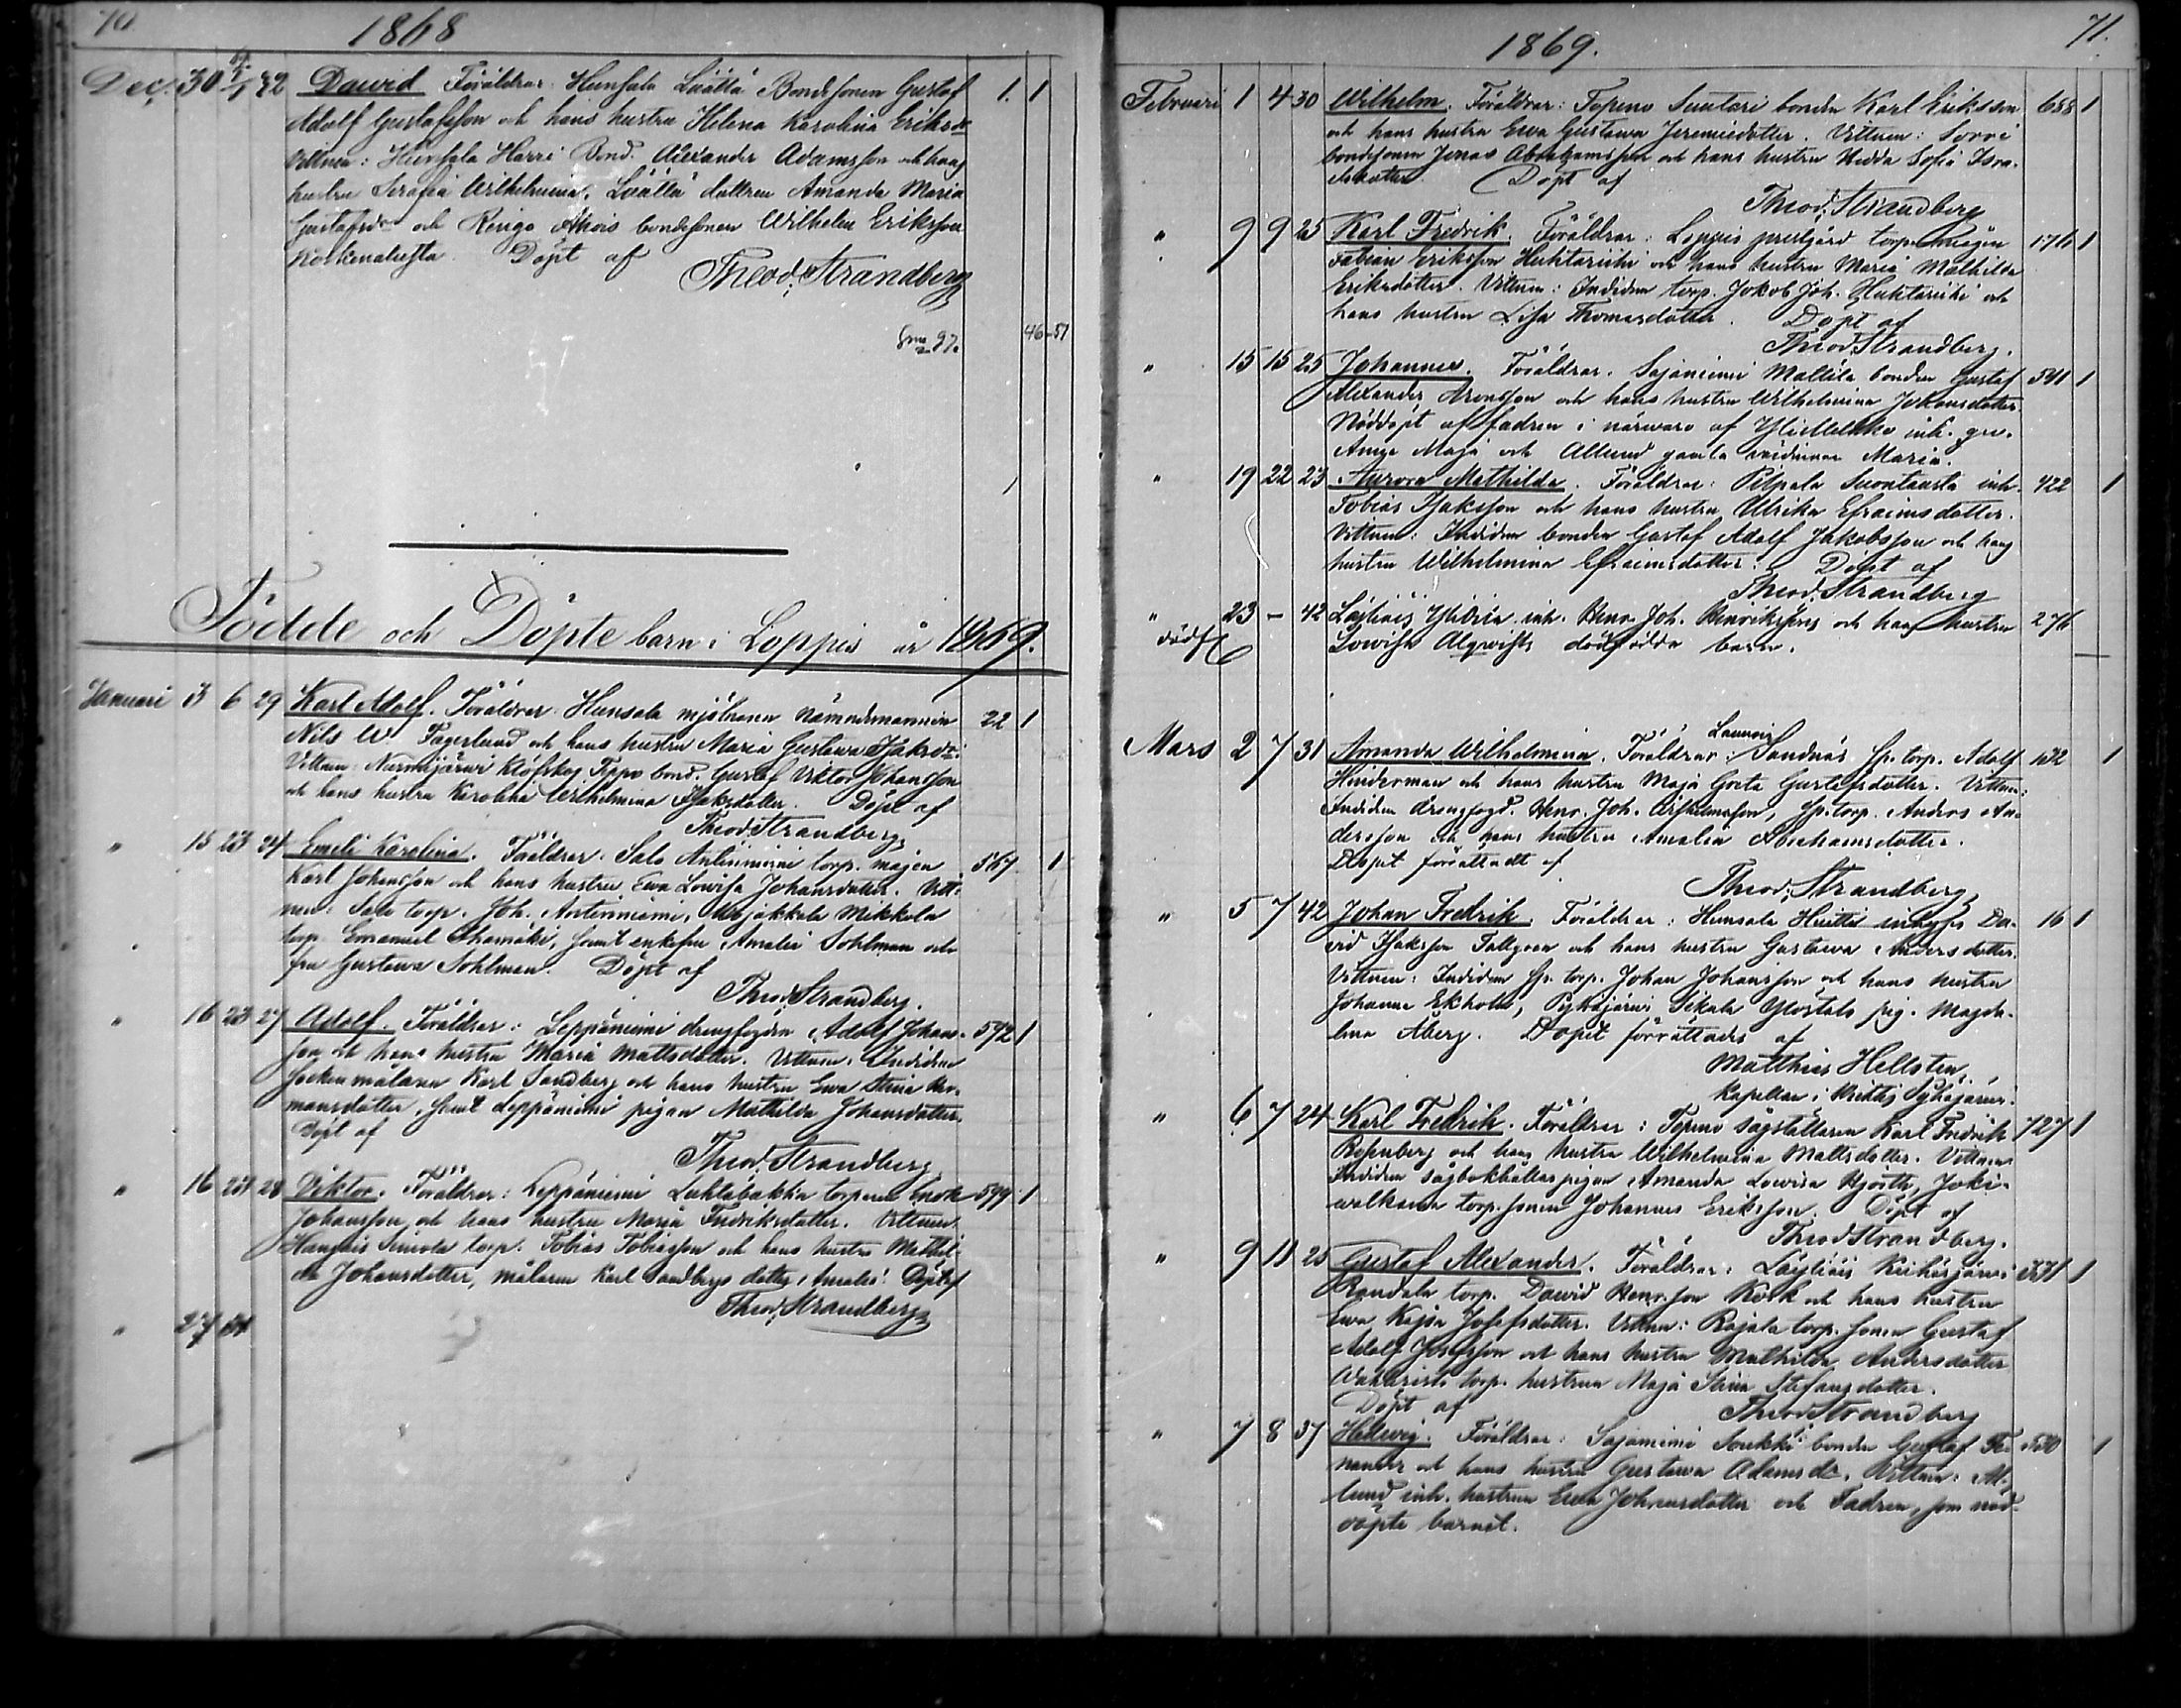 70
1868
Dec. 30 1/1 42 Dawid Föräldrar Hunsala Luätlä Bondesonen Gustaf 1. 1
Adolf Gustafsson och hans hustru Helena Karolina Eriksdr
Vittnen: Hunsala Harri Bond. Alexander Adamsson och hans
hustru Serafia Wilhelmina, dottren Amanda Maria
Gustafsdr och Renigo bondesonen Wilhelm Eriksson
Döpt af
Theod. Strandberg
Sma 97. 46-51
Födde och Döpte barn i Loppis år 1869.
Januari 3 6 29 Karl Adolf. Föräldrar Hunsala mjölnaren Nämndemannen 22 1
Nils W. Fagerlund och hans hustru Maria Gustawa Isaksdr.
Vittnen: Nurmijärwi Klöfskog Teppo bond. Gustaf Viktor Johansson
och hans hustru Karolina Wilhelmina Isaksdotter. Döpt af
Theod. Strandberg
" 15 23 24 Emeli Karolina. Föräldrar. Salo Antinniemi torp. mågen 567 1
Karl Johansson och hans hustru Ewa Lowisa Johansdotter. Vitt-
nen: Salo torp. Joh. Antinniemi, Mikkola
torp. Emanuel samt enkefru Amalia Sohlman och
fru Gustawa Sohlman. Döpt af
Theod. Strandberg.
" 16 23 27 Adolf. Föräldrar: Leppäniemi drengfogden Adolf Johans- 592 1
son och hans hustru Maria Mattsdotter. Vittnen: Indidem
sockenmålaren Karl Sandberg och hans hustru Ewa Stina Her-
mansdotter, samt Leppäniemi pigan Mathilda Johansdotter.
Döpt af
Theod. Strandberg
" 16 23 28 Viktor. Föräldrar: Leppäniemi torparen Enok 599 1
Johansson och hans hustru Maria Fredriksdotter. Vittnen
torp. Tobias Tobiasson och hans hustru Mathil-
da Johansdotter, målaren Karl Sandbergs dotter Amalia. Döpt af
Theod. Strandberg
" 27
71.
1869.
Februari 1 4 30 Wilhelm. Föräldrar: Topeno Suutari bonden Karl Eriksson 688 1
och hans hustru Ewa Gustawa Jeremiedotter. Vittnen: Sorri
bondesonen Jonas Abrahamsson och hans hustru Hedda Sofia Isra-
elsdotter. Döpt af
Theod. Strandberg
" 9 9 25 Karl Fredrik. Föräldrar: Loppis prestgård torp. mågen 176 1
Fabian Eriksson Huhtariihi och hans hustru Maria Mathilda
Eriksdotter. Vittnen: Indidem torp. Jakob Joh. Huhtariihi och
hans hustru Lisa Thomasdotter. Döpt af
Theod. Strandberg.
" 15 15 25 Johannes. Föräldrar. Sajaniemi Mattila bonden Gustaf 541 1
Alexander Aronsson och hans hustru Wilhelmina Johansdotter.
Nöddöpt af fadren i närwaro af inh. gu.
Maja och Allund gamla Maria.
" 19 22 23 Aurora Mathilda. Föräldrar: Pilpala Suontausta inh. 422 1
Tobias Isaksson och hans hustru Ulrika Efraimsdotter.
Vittnen: Indidem bonden Gustaf Adolf Jakobsson och hans
hustru Wilhelmina Efraimsdotter. Döpt af
Theod. Strandberg
" 23 - 42 Läyliäis Ylidria inh. Henr. Joh. Henrikssons och hans hustru 276
dödf. Lowisa Alqwists dödfödda barn.
Launois
Mars 2 7 31 Amanda Wilhelmina. Föräldrar: Sandnäs sp. torp. Adolf 132 1
Hinderman och hans hustru Maja Greta Gustafsdotter. Vittnen:
Indidem drengfogd. Henr. Joh. Wilhelmsson, sp. torp. Anders An-
dersson och hans hustru Amalia Abrahamsdotter.
Dopet förrättadt af
Theod. Strandberg
" 5 7 42 Johan Fredrik. Föräldrar: Hunsala Huitti inhyses Da- 16 1
vid Isaksson Tallgren och hans hustru Gustawa Andersdotter.
Vittnen: Indidem sp. torp. Johan Johansson och hans hustru
Johanna Ekholm, Pyhäjärwi Ylöstalo pig. Magda-
lena Åberg. Dopet förrättades af
Matthias Hellsten,
Kapellan i Wichtis Pyhäjärwi.
" 6 7 24 Karl Fredrik. Föräldrar: Topeno sågställaren Karl Fredrik 727 1
Rosenberg och hans hustru Wilhelmina Mattsdotter. Vittnen
Indidem sågbokhållarpigan Amanda Lowisa Hjorth, Joki-
torp.sonen Johannes Eriksson. Döpt af
Theod Strandberg.
" 9 11 25 Gustaf Alexander. Föräldrar: Läyliäis Keihäsjärwi 331 1
Randala torp. Dawid Henr.son Kock och hans hustru
Ewa Kajsa Josefsdotter. Vittnen: Rajala torp. sonen Gustaf
Adolf Josefsson och hans hustru Mathilda Andersdotter
torp. hustrun Maja Stina Stefansdotter.
Döpt af
Theod. Strandberg
" 7 8 37 Hedwig. Föräldrar: Sajaniemi Soukki bonden Gustaf Fer- 530 1
nander och hans hustru Gustawa Adamsdr. Vittnen: Al-
lund inh. hustrun Ewa Johansdotter och Fadren, som nöd-
döpte barnet.